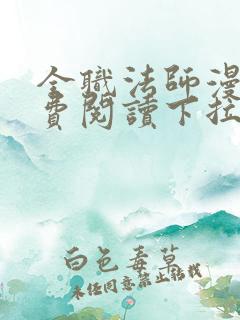 全職法師漫
費閱讀下拉
白色毒草
未经同意禁止转载